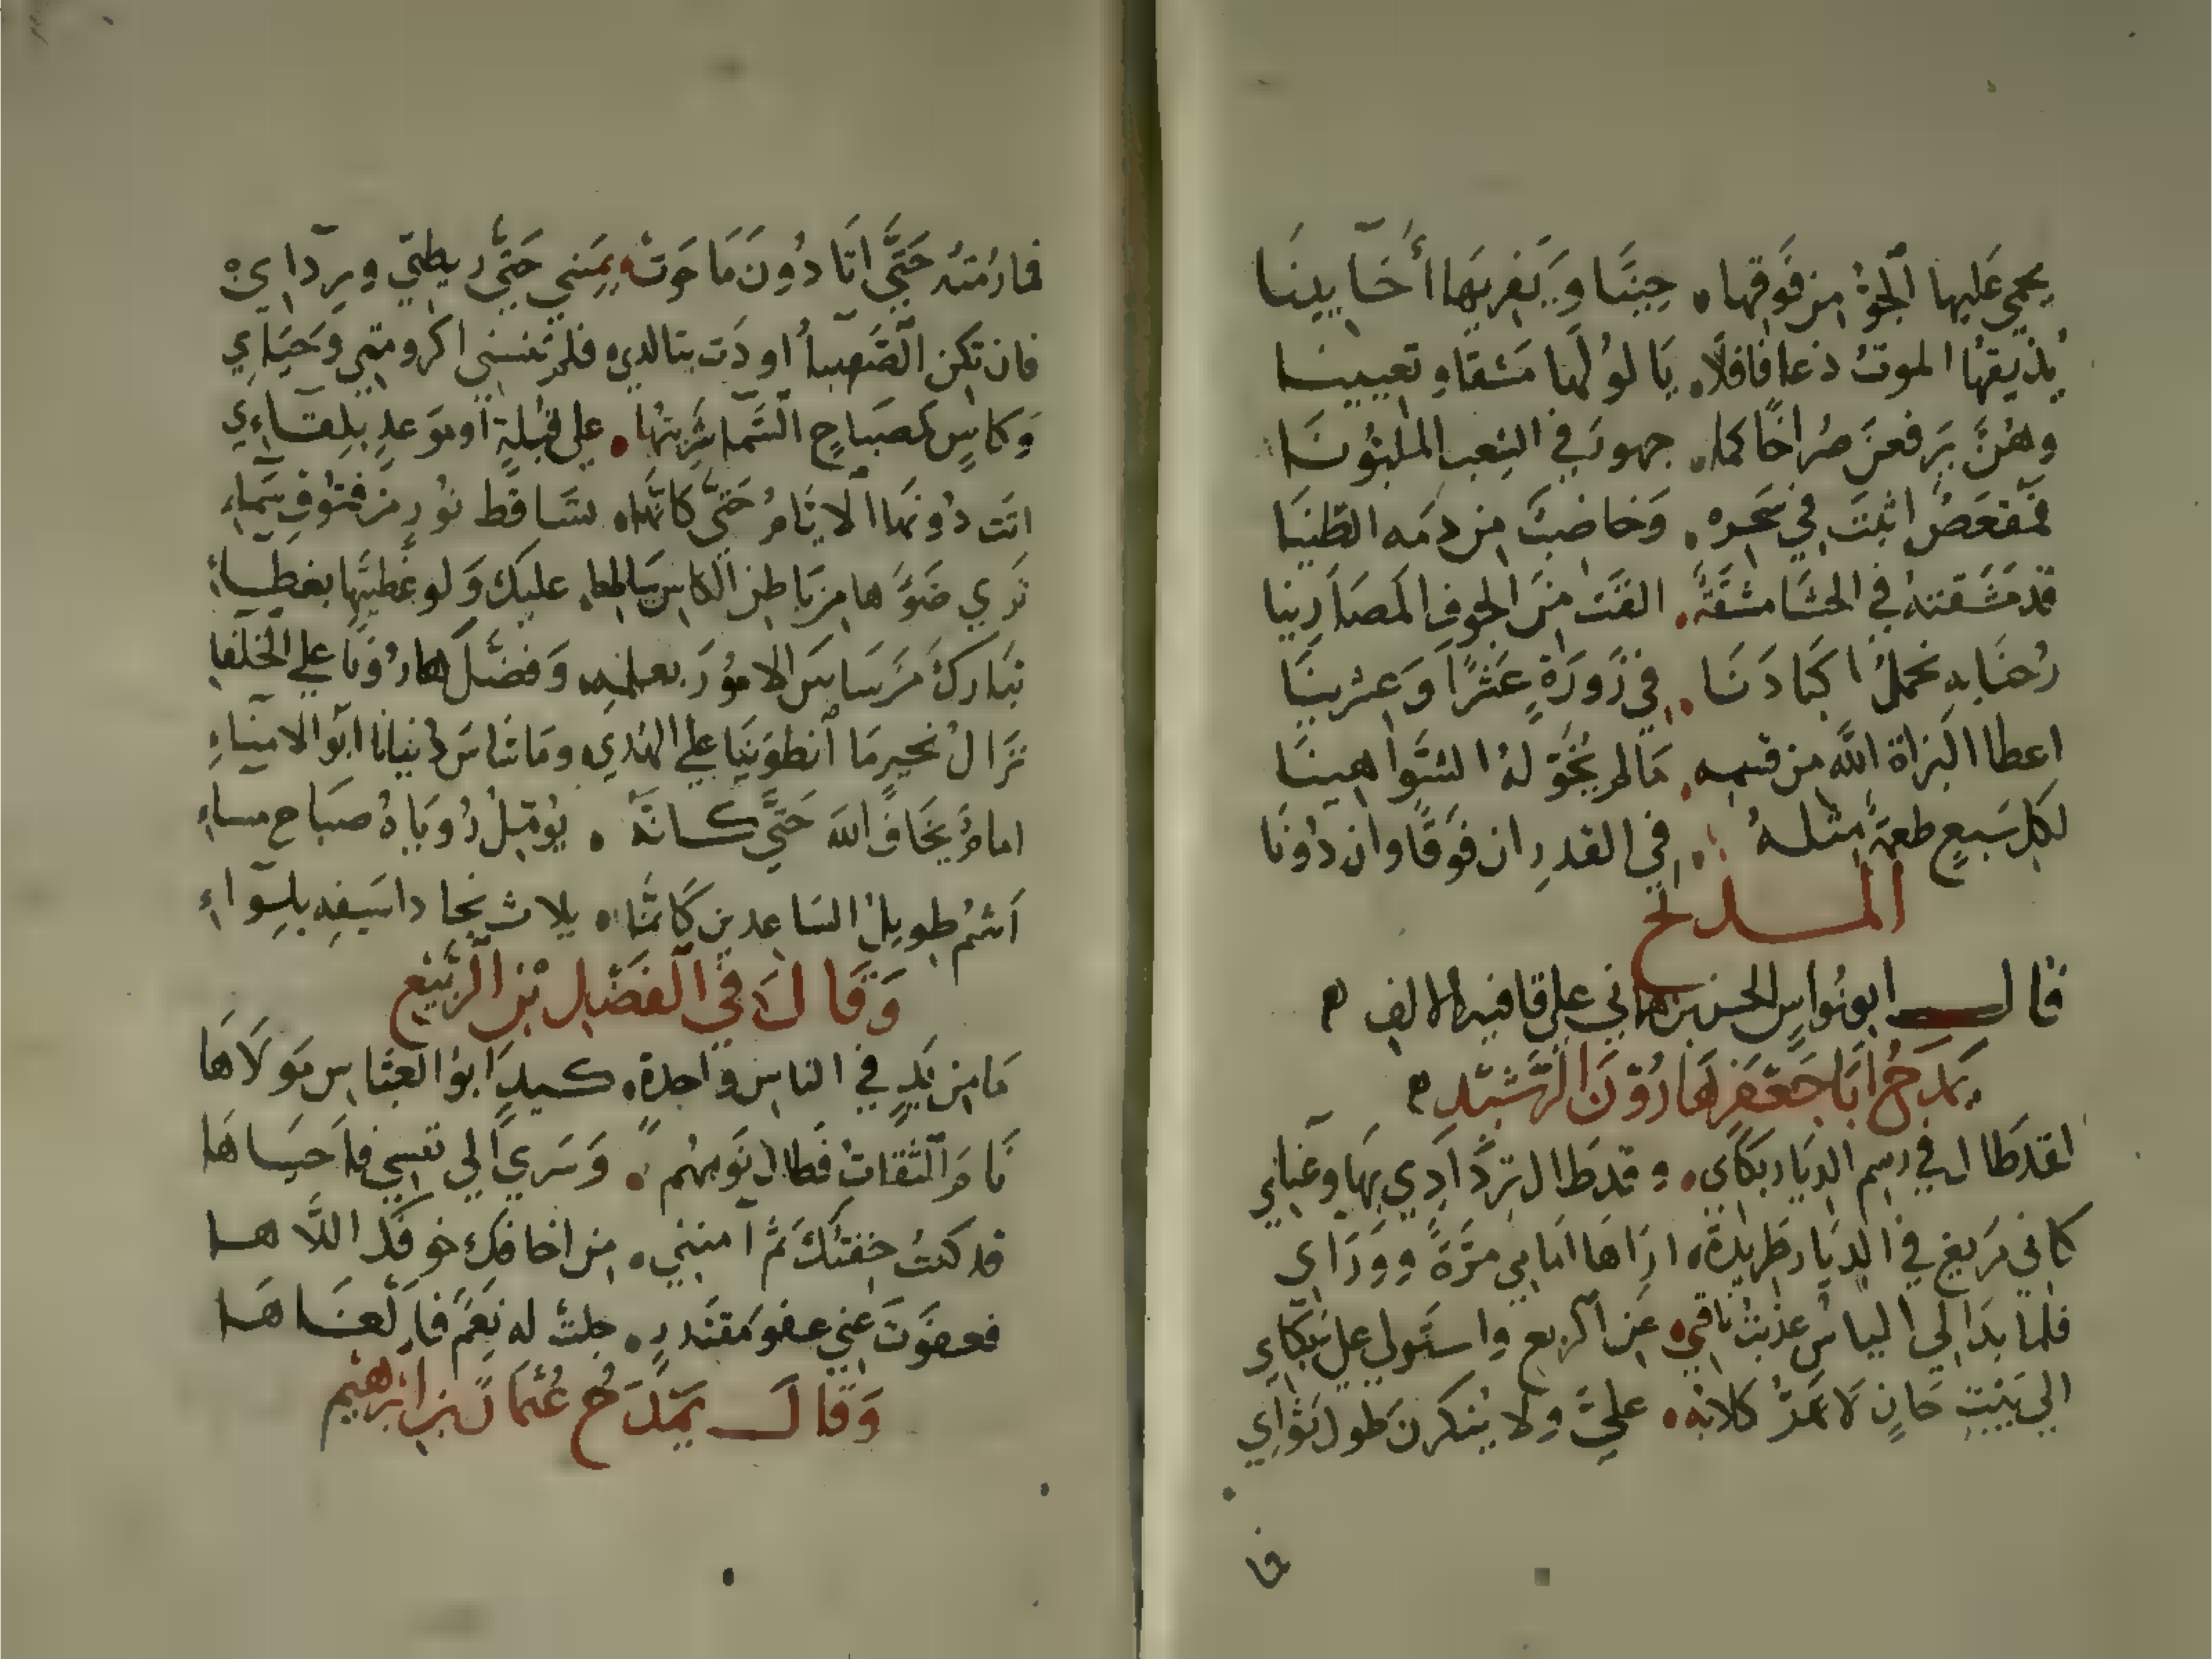 يحمي عليها الجو من فوقها حينا ويغريها أحايينا
يذيقها الموت ذعافا فلا يالو لها مشقا وتعيينا
وهن يرفعن صراخا كما جهور في الشعب الملبونا
فمقعص اثبت في سحره وخاضب من دمه الطينا
قد مشقته في الحشا مشقة القت من الجوف المصارينا
رحنا به نحمل اكبادنا في زورة عشرا وعشرينا
اعطا البزاة الله من قسمه ما لم يخوله الشواهينا
لكل سبع طعمة مثله في القدر ان فوقا وان دونا
المدح
قال ابو نواس الحسن بن هاني على قافية الالف
يمدح ابا جعفر هارون الرشيد
لقد طال في رسم الديار بكاي وقد طال تردادي بها وعناي
كاني مريغ في الديار طريدة اراها امامي مرة ووراي
فلما بدا لي الياس عديت ناقتي عن الربع واستولى علي عزاي
الى بيت حان لا تهر كلابه علي ولا ينكرن طول ثواي
فما رمته حتى اتا دون ما حوت يميني حتى ريطتي ورداي
فان تكن الصهبا اودت بتالدي فلم تنسني اكرومتي وحياي
وكاس كمصباح السما شربتها على قبلة او موعد بلقاي
اتت دونها الايام حتى كانها تساقط نور من فتوق سماء
ترى ضوءها من باطن الكاس ساطعا عليك ولو غطيتها بغطاء
تبارك من ساس الامور بعلمه وفضل هارونا على الخلفا
نزال بخير ما انطوينا على الهدى وما ساس دنيانا ابو الامناء
امام يخاف الله حتى كانه يؤمل رؤياه صباح مساء
اشم طويل الساعدين كانما يلاث نجادا سيفه بلواء
وقال في الفضل بن الربيع
ما من يد في الناس واحدة كيد ابو العباس مولاها
نام الثقات فطال نومهم وسرى الى نفسي فاحياها
قد كنت خفتك ثم آمنني من اخافك خوفك اللاها
فعفوت عني عفو مقتدر حلت له نعم فالغاها
وقال يمدح عثمان بن ابرهيم